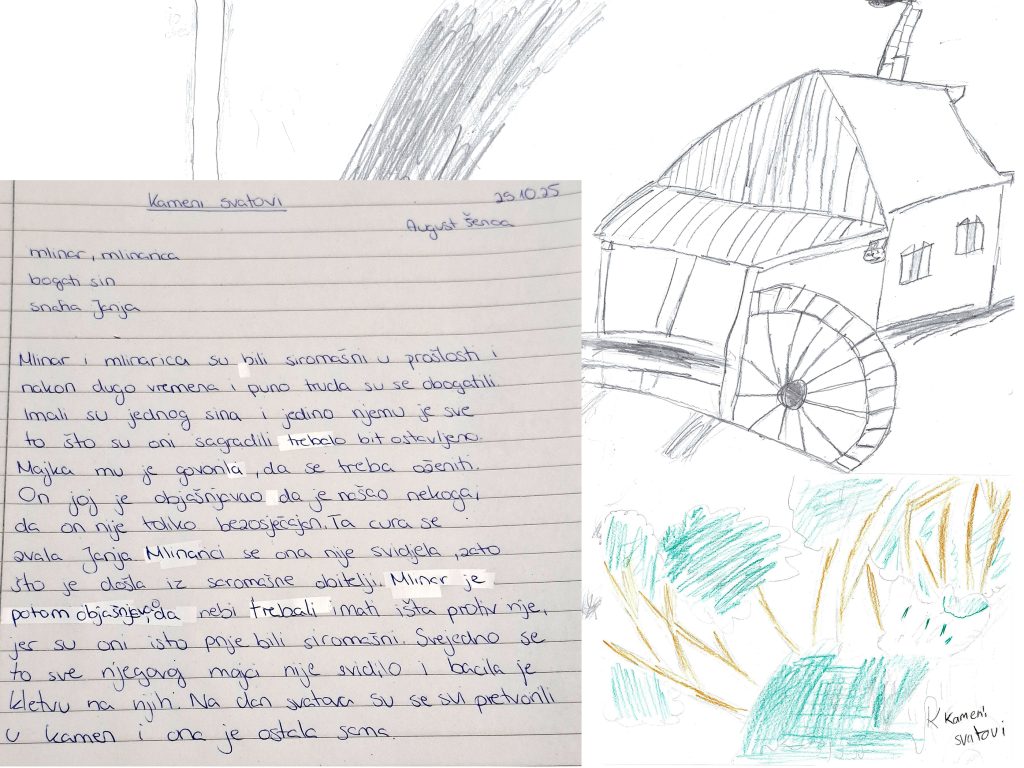 Kameni svatovi
25.10.25
August Šenoa
mlinar, mlinarica
bogati sin
snaha Janja
Mlinar i mlinarica su bili siromašni u prošlosti i
nakon dugo vremena i puno truda su se obogatili.
Imali su jednog sina i jedino njemu je sve
to što su oni sagradili trebalo bit ostavljeno.
Majka mu je govorila, da se treba oženiti.
On joj je objašnjavao da je našao nekoga,
da on nije toliko bezosjećajan. Ta cura se
zvala Janja. Mlinarici se ona nije svidjela, zato
što je došla iz soromašne obitelji. Mlinar je
potom objašnjavao, da nebi trebali imati išta protiv nje,
jer su oni isto prije bili siromašni. Svejedno se
to sve njegovoj majci nije svidilo i bacila je
kletvu na njih. Na dan svatova su se svi pretvorili
u kamen i ona je ostala sama.
Kameni
svatovi